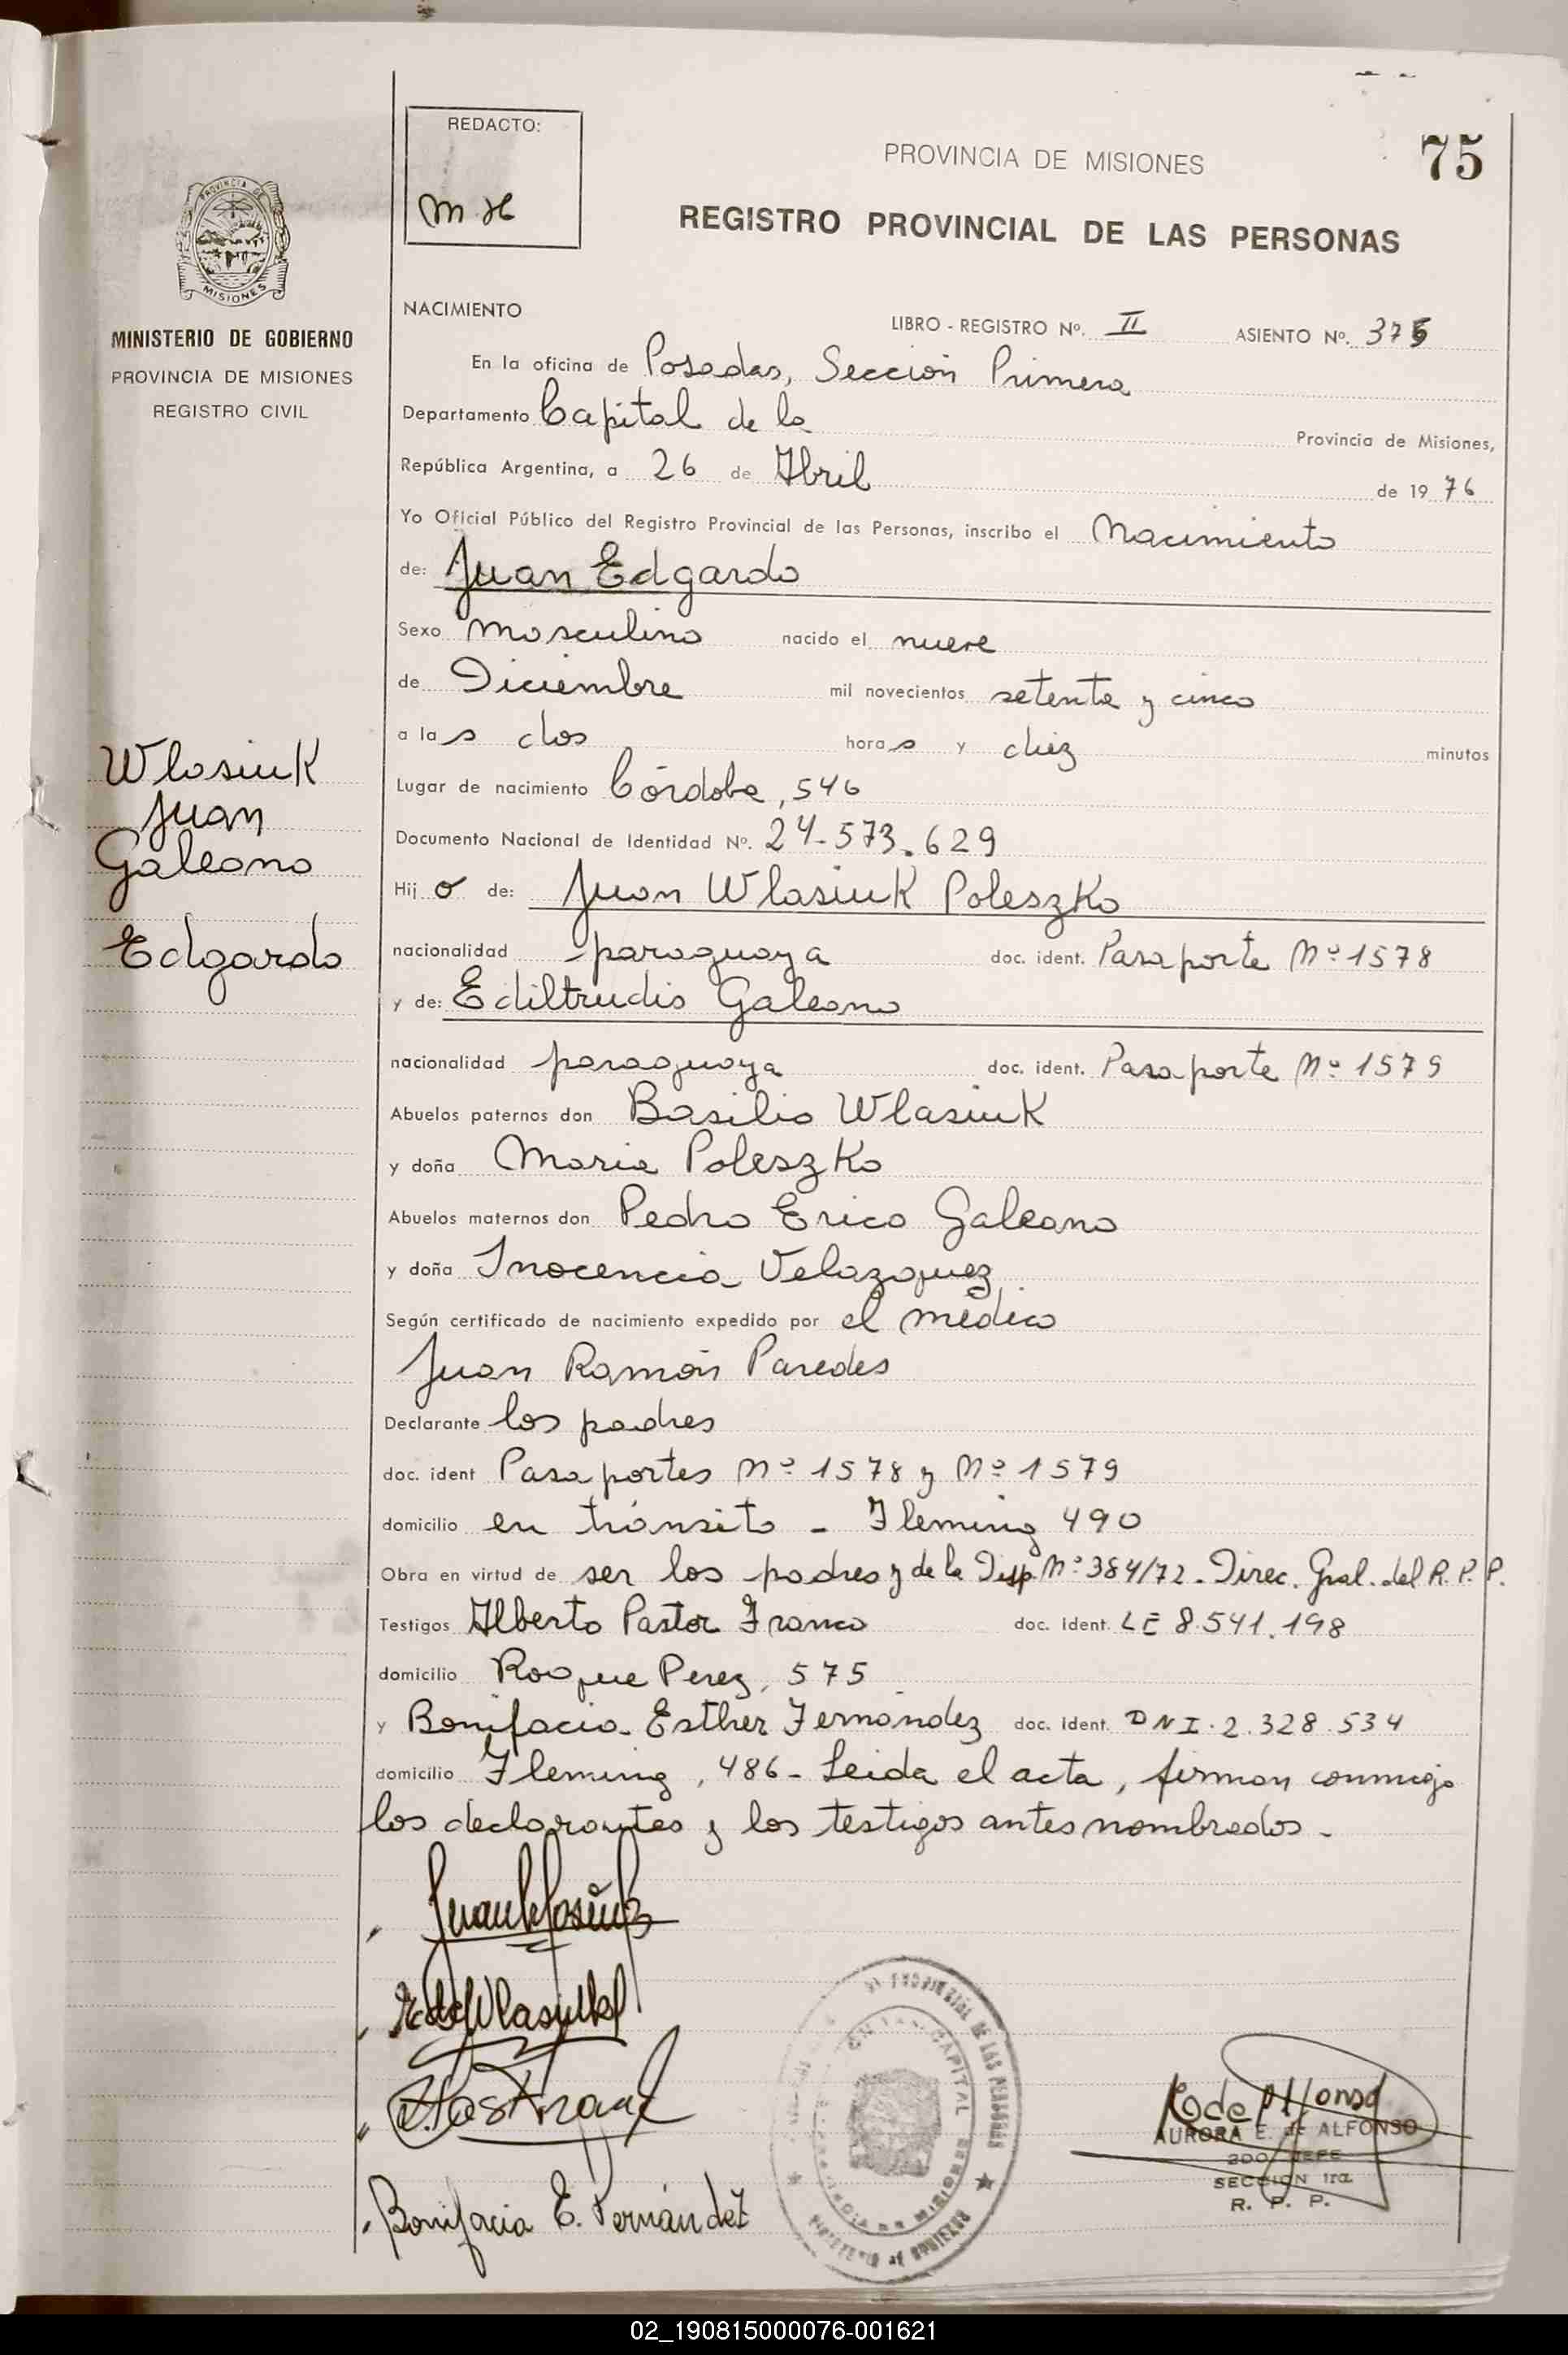 REDACTO:
M H
PROVINCIA DE MISIONES
75
REGISTRO PROVINCIAL DE LAS PERSONAS
PROVINCIA DE
MISIONES
MINISTERIO DE GOBIERNO
PROVINCIA DE MISIONES
REGISTRO CIVIL
NACIMIENTO
LIBRO - REGISTRO Nº. II ASIENTO Nº. 375
En la oficina de Posadas, Sección Primera
Departamento Capital de la Provincia de Misiones,
República Argentina, a 26 de Abril de 1976
Yo Oficial Público del Registro Provincial de las Personas, inscribo el Nacimiento
de: Juan Edgardo
Sexo masculino nacido el nueve
de Diciembre mil novecientos setenta y cinco
a las dos horas y diez minutos
Lugar de nacimiento Córdoba, 546
Documento Nacional de Identidad Nº. 24.573.629
Hijo de: Juan Wlasiuk Poleszko
nacionalidad paraguaya doc. ident. Pasaporte Nº 1578
y de: Ediltrudis Galeano
nacionalidad paraguaya doc. ident. Pasaporte Nº 1579
Abuelos paternos don Basilio Wlasiuk
y doña Maria Poleszko
Abuelos maternos don Pedro Erico Galeano
y doña Inocencia Velazquez
Según certificado de nacimiento expedido por el médico
Juan Ramón Paredes
Declarante los padres
doc. ident Pasaportes Nº 1578 y Nº 1579
domicilio en tránsito - Fleming 490
Obra en virtud de ser los padres y de la Disp. Nº 384/72 - Direc. Gral. del R. P. P.
Testigos Alberto Pastor Franco doc. ident. LE 8.541.198
domicilio Roque Perez, 575
y Bonifacia Esther Fernández doc. ident. DNI. 2.328.534
domicilio Fleming, 486 - Leida el acta, firman conmigo
los declarantes y los testigos antes nombrados.
Wlasiuk
Juan
Galeano
Edgardo
Juan Wlasiuk
E de Wlasiuk
Bonifacia E. Fernández
PROVINCIAL DE LAS PERSONAS
CAPITAL
MISIONES
MINISTERIO DE GOBIERNO
E de Alfonso
AURORA E. de ALFONSO
2DO JEFE
SECCION 1ra
R. P. P.
02_190815000076-001621